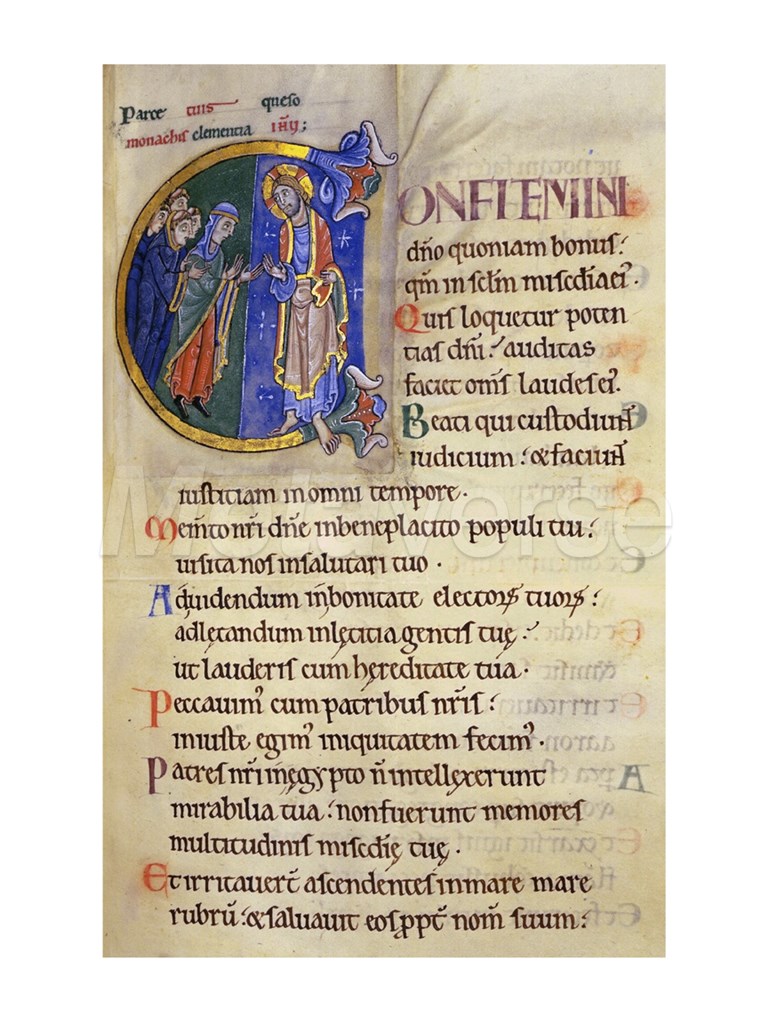 Parce tuis queso
monachis clementia ihu;
CONFITEMINI
dño quoniam bonus:
qm̄ in sclm̄ misc̄dia ei᾽.
Quis loquetur poten
tias dñi: auditas
faciet om̄s laudes ei᾽.
Beati qui custodiunt
iudicium: & faciunt
iustitiam in omni tempore.
Mem̄to nr̄i dñe in beneplacito populi tui:
uisita nos in salutari tuo.
Ad uidendum in bonitate electoꝝ tuoꝝ:
ad lętandum in lętitia gentis tuę:
ut lauderis cum hęreditate tua.
Peccauim᾽ cum patribus nr̄is:
iniuste egim᾽ iniquitatem fecim᾽.
Patres nr̄i in ęgypto ñ intellexerunt
mirabilia tua: non fuerunt memores
multitudinis misc̄dię tuę.
Et irritauer̄t ascendentes in mare mare
rubrū: & saluauit eos ꝓpt̄ nom̄ suum: